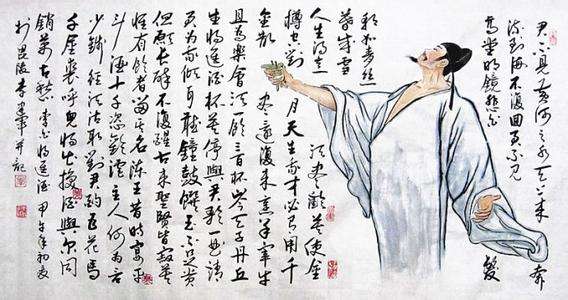 君不见黄河之水天上来奔
流到海不复回君不见
高堂明镜悲白髮
朝如青丝
暮成雪
人生得意须尽欢莫使金
樽空对月天生我材必有用千
金散尽还复来烹羊宰牛
且为乐会须一饮三百杯岑夫子丹丘
生将进酒杯莫停与君歌一曲请
君为我倾耳听鐘鼓馔玉不足贵
但愿长醉不复醒古来圣贤皆寂寞
惟有饮者留其名陈王昔时宴平
斗酒十千恣欢谑主人何为言
少钱径须沽取对君酌五花马
千金裘呼儿将出换酒與尔同
销万古愁李白将进酒甲午年初夏
于毘陵李